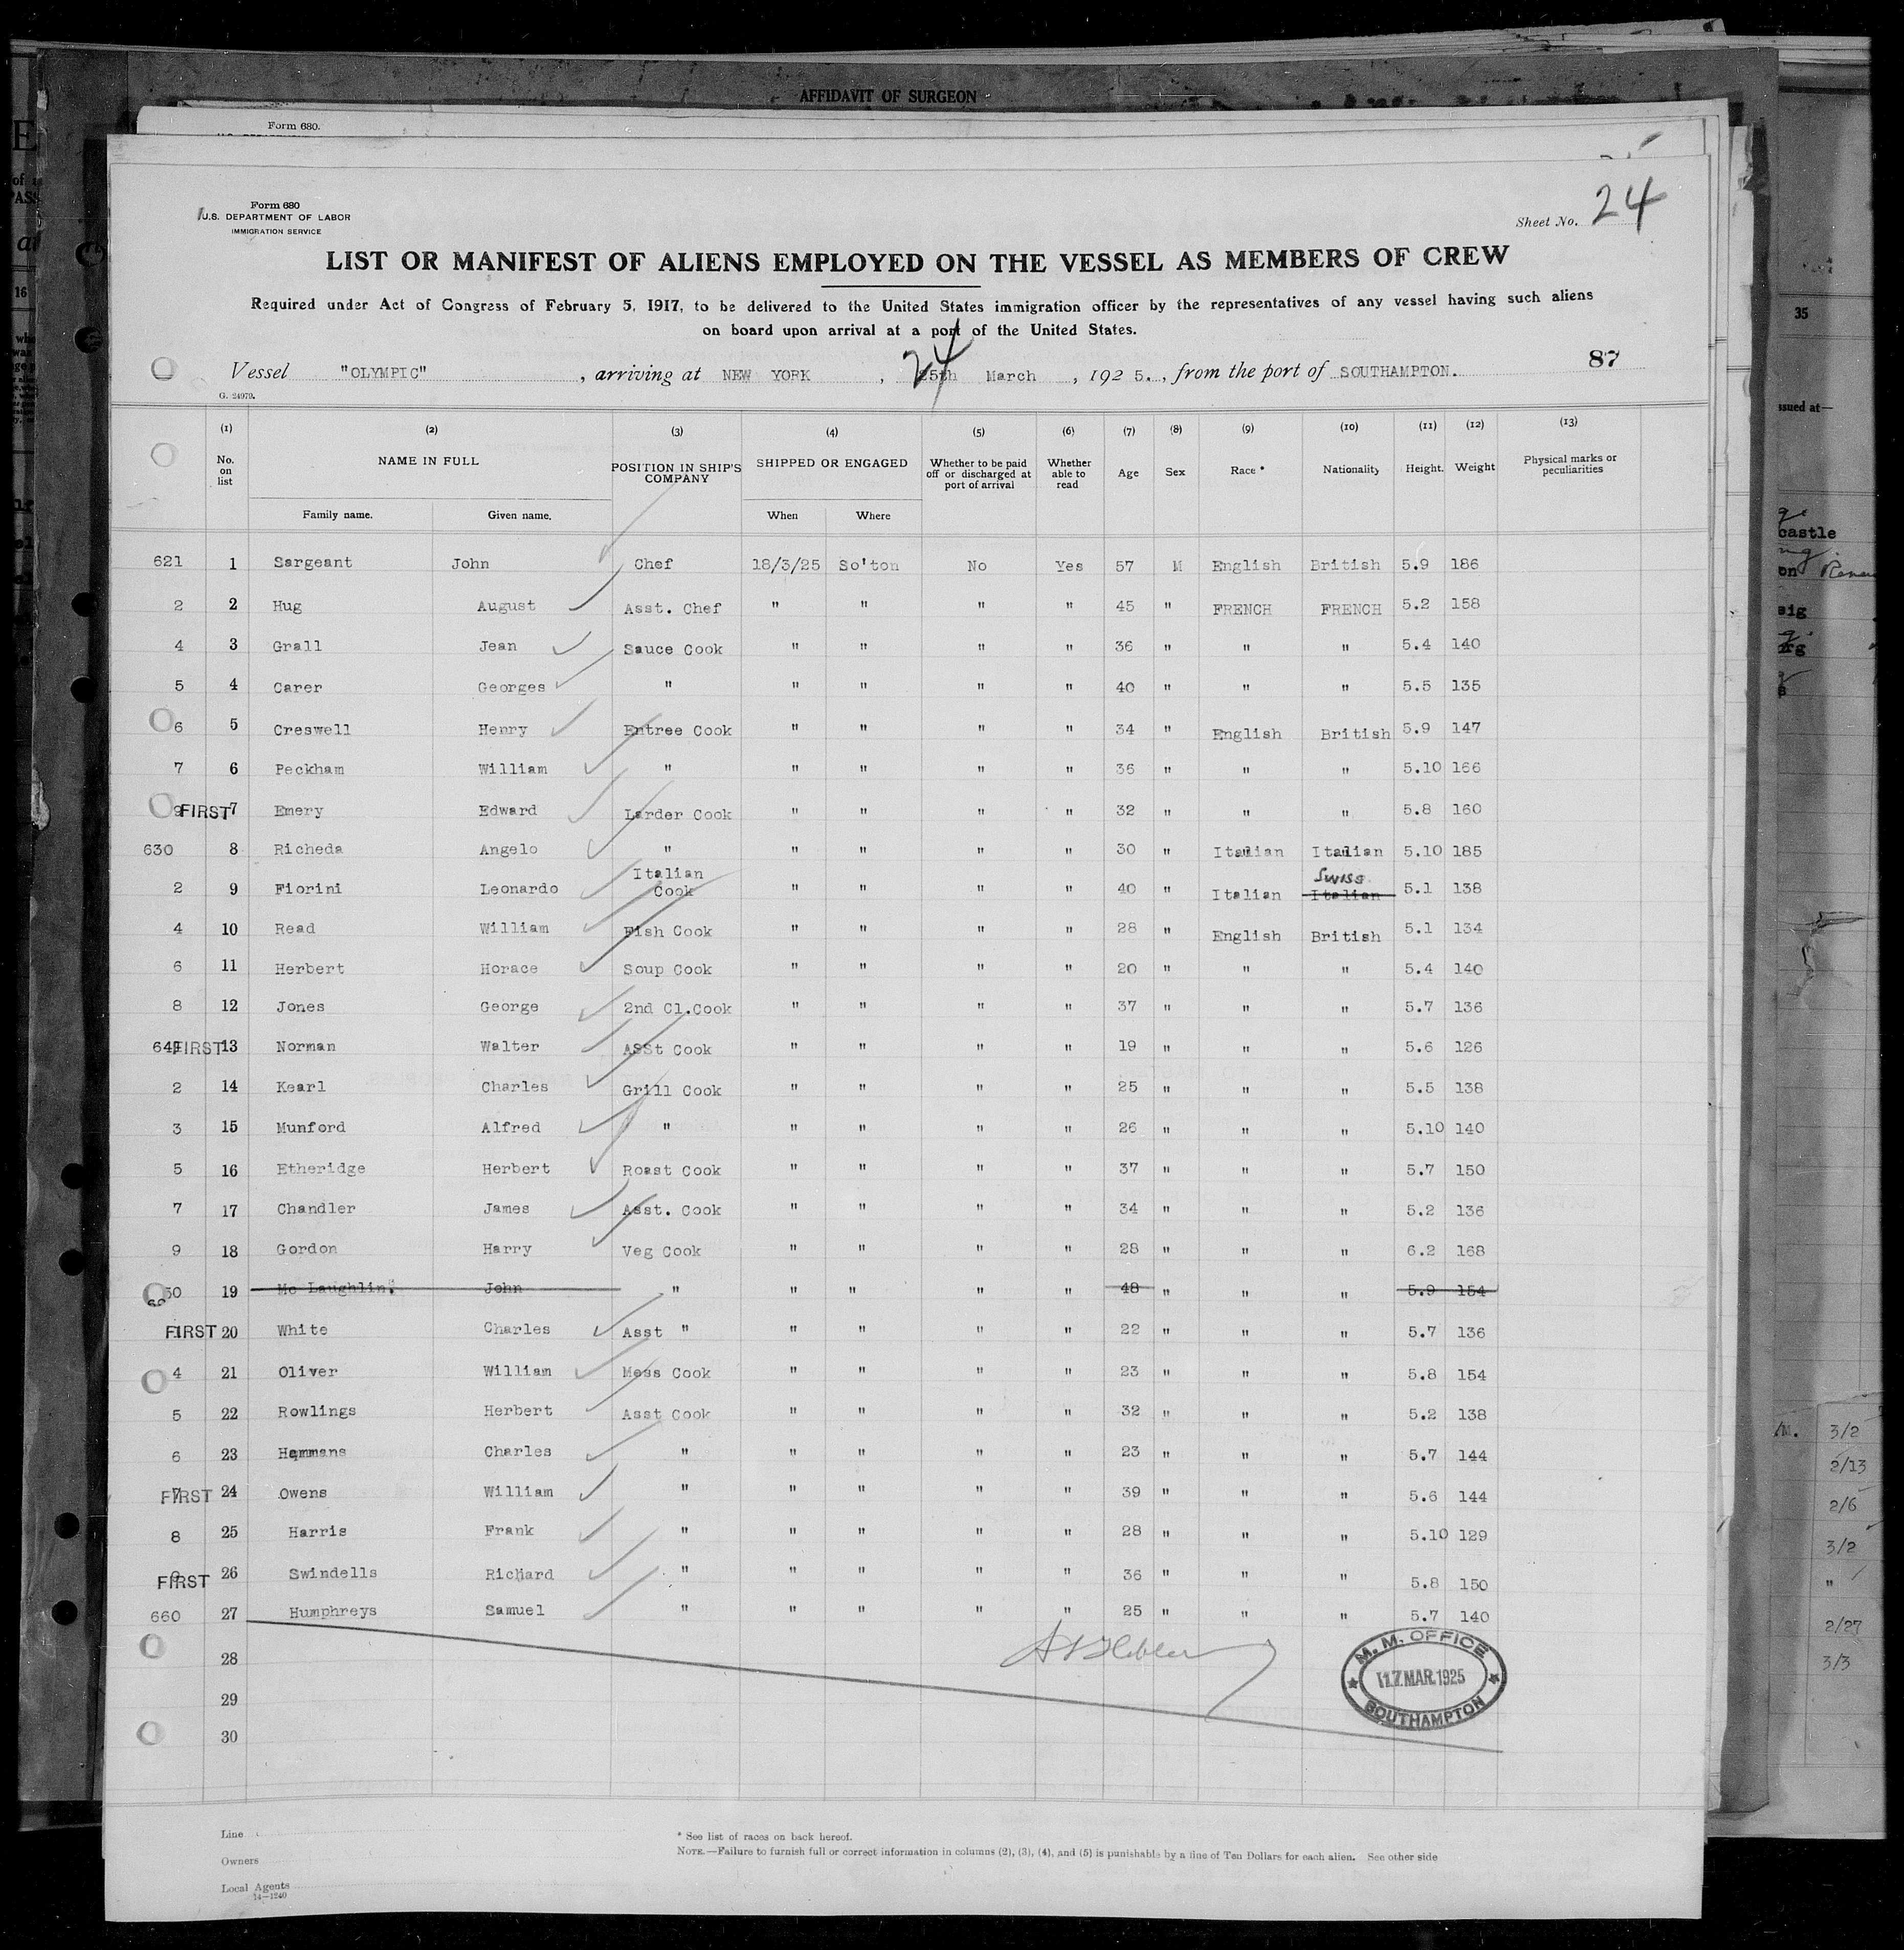 AFFIDAVIT OF SURGEON
Form 680.
Form 680
U.S. DEPARTMENT OF LABOR
IMMIGRATION SERVICE
Sheet No. 24
LIST OR MANIFEST OF ALIENS EMPLOYED ON THE VESSEL AS MEMBERS OF CREW
Required under Act of Congress of February 5, 1917, to be delivered to the United States immigration officer by the representatives of any vessel having such aliens
on board upon arrival at a port of the United States.
87
Vessel "OLYMPIC", arriving at NEW YORK, 24 25th March, 1925., from the port of SOUTHAMPTON.
G. 24979.
(1) (2) (3) (4) (5) (6) (7) (8) (9) (10) (11) (12) (13)
No. on list NAME IN FULL POSITION IN SHIP'S COMPANY SHIPPED OR ENGAGED Whether to be paid off or discharged at port of arrival Whether able to read Age Sex Race * Nationality Height. Weight Physical marks or peculiarities
Family name. Given name. When Where
621 1 Sargeant John Chef 18/3/25 So'ton No Yes 57 M English British 5.9 186
2 2 Hug August Asst. Chef " " " " 45 " FRENCH FRENCH 5.2 158
4 3 Grall Jean Sauce Cook " " " " 36 " " " 5.4 140
5 4 Carer Georges " " " " " 40 " " " 5.5 135
6 5 Creswell Henry Entree Cook " " " " 34 " English British 5.9 147
7 6 Peckham William " " " " " 36 " " " 5.10 166
9 FIRST 7 Emery Edward Larder Cook " " " " 32 " " " 5.8 160
630 8 Richeda Angelo " " " " " 30 " Italian Italian 5.10 185
2 9 Fiorini Leonardo Italian Cook " " " " 40 " Italian Swiss Italian 5.1 138
4 10 Read William Fish Cook " " " " 28 " English British 5.1 134
6 11 Herbert Horace Soup Cook " " " " 20 " " " 5.4 140
8 12 Jones George 2nd Cl.Cook " " " " 37 " " " 5.7 136
641 FIRST 13 Norman Walter ASSt Cook " " " " 19 " " " 5.6 126
2 14 Kearl Charles Grill Cook " " " " 25 " " " 5.5 138
3 15 Munford Alfred " " " " " 26 " " " 5.10 140
5 16 Etheridge Herbert Roast Cook " " " " 37 " " " 5.7 150
7 17 Chandler James Asst. Cook " " " " 34 " " " 5.2 136
9 18 Gordon Harry Veg Cook " " " " 28 " " " 6.2 168
50 19 Mc Laughlin John " " " " " 48 " " " 5.9 154
FIRST 20 White Charles Asst " " " " " 22 " " " 5.7 136
4 21 Oliver William Mess Cook " " " " 23 " " " 5.8 154
5 22 Rowlings Herbert Asst Cook " " " " 32 " " " 5.2 138
6 23 Hammans Charles " " " " " 23 " " " 5.7 144
7 FIRST 24 Owens William " " " " " 39 " " " 5.6 144
8 25 Harris Frank " " " " " 28 " " " 5.10 129
9 FIRST 26 Swindells Richard " " " " " 36 " " " 5.8 150
660 27 Humphreys Samuel " " " " " 25 " " " 5.7 140
28
29
30
M. M. OFFICE
17 MAR. 1925
SOUTHAMPTON
Line
Owners
Local Agents
14—1240
* See list of races on back hereof.
NOTE.—Failure to furnish full or correct information in columns (2), (3), (4), and (5) is punishable by a fine of Ten Dollars for each alien. See other side
16
35
issued at—
castle
3/2
2/13
2/6
3/2
"
2/27
3/3